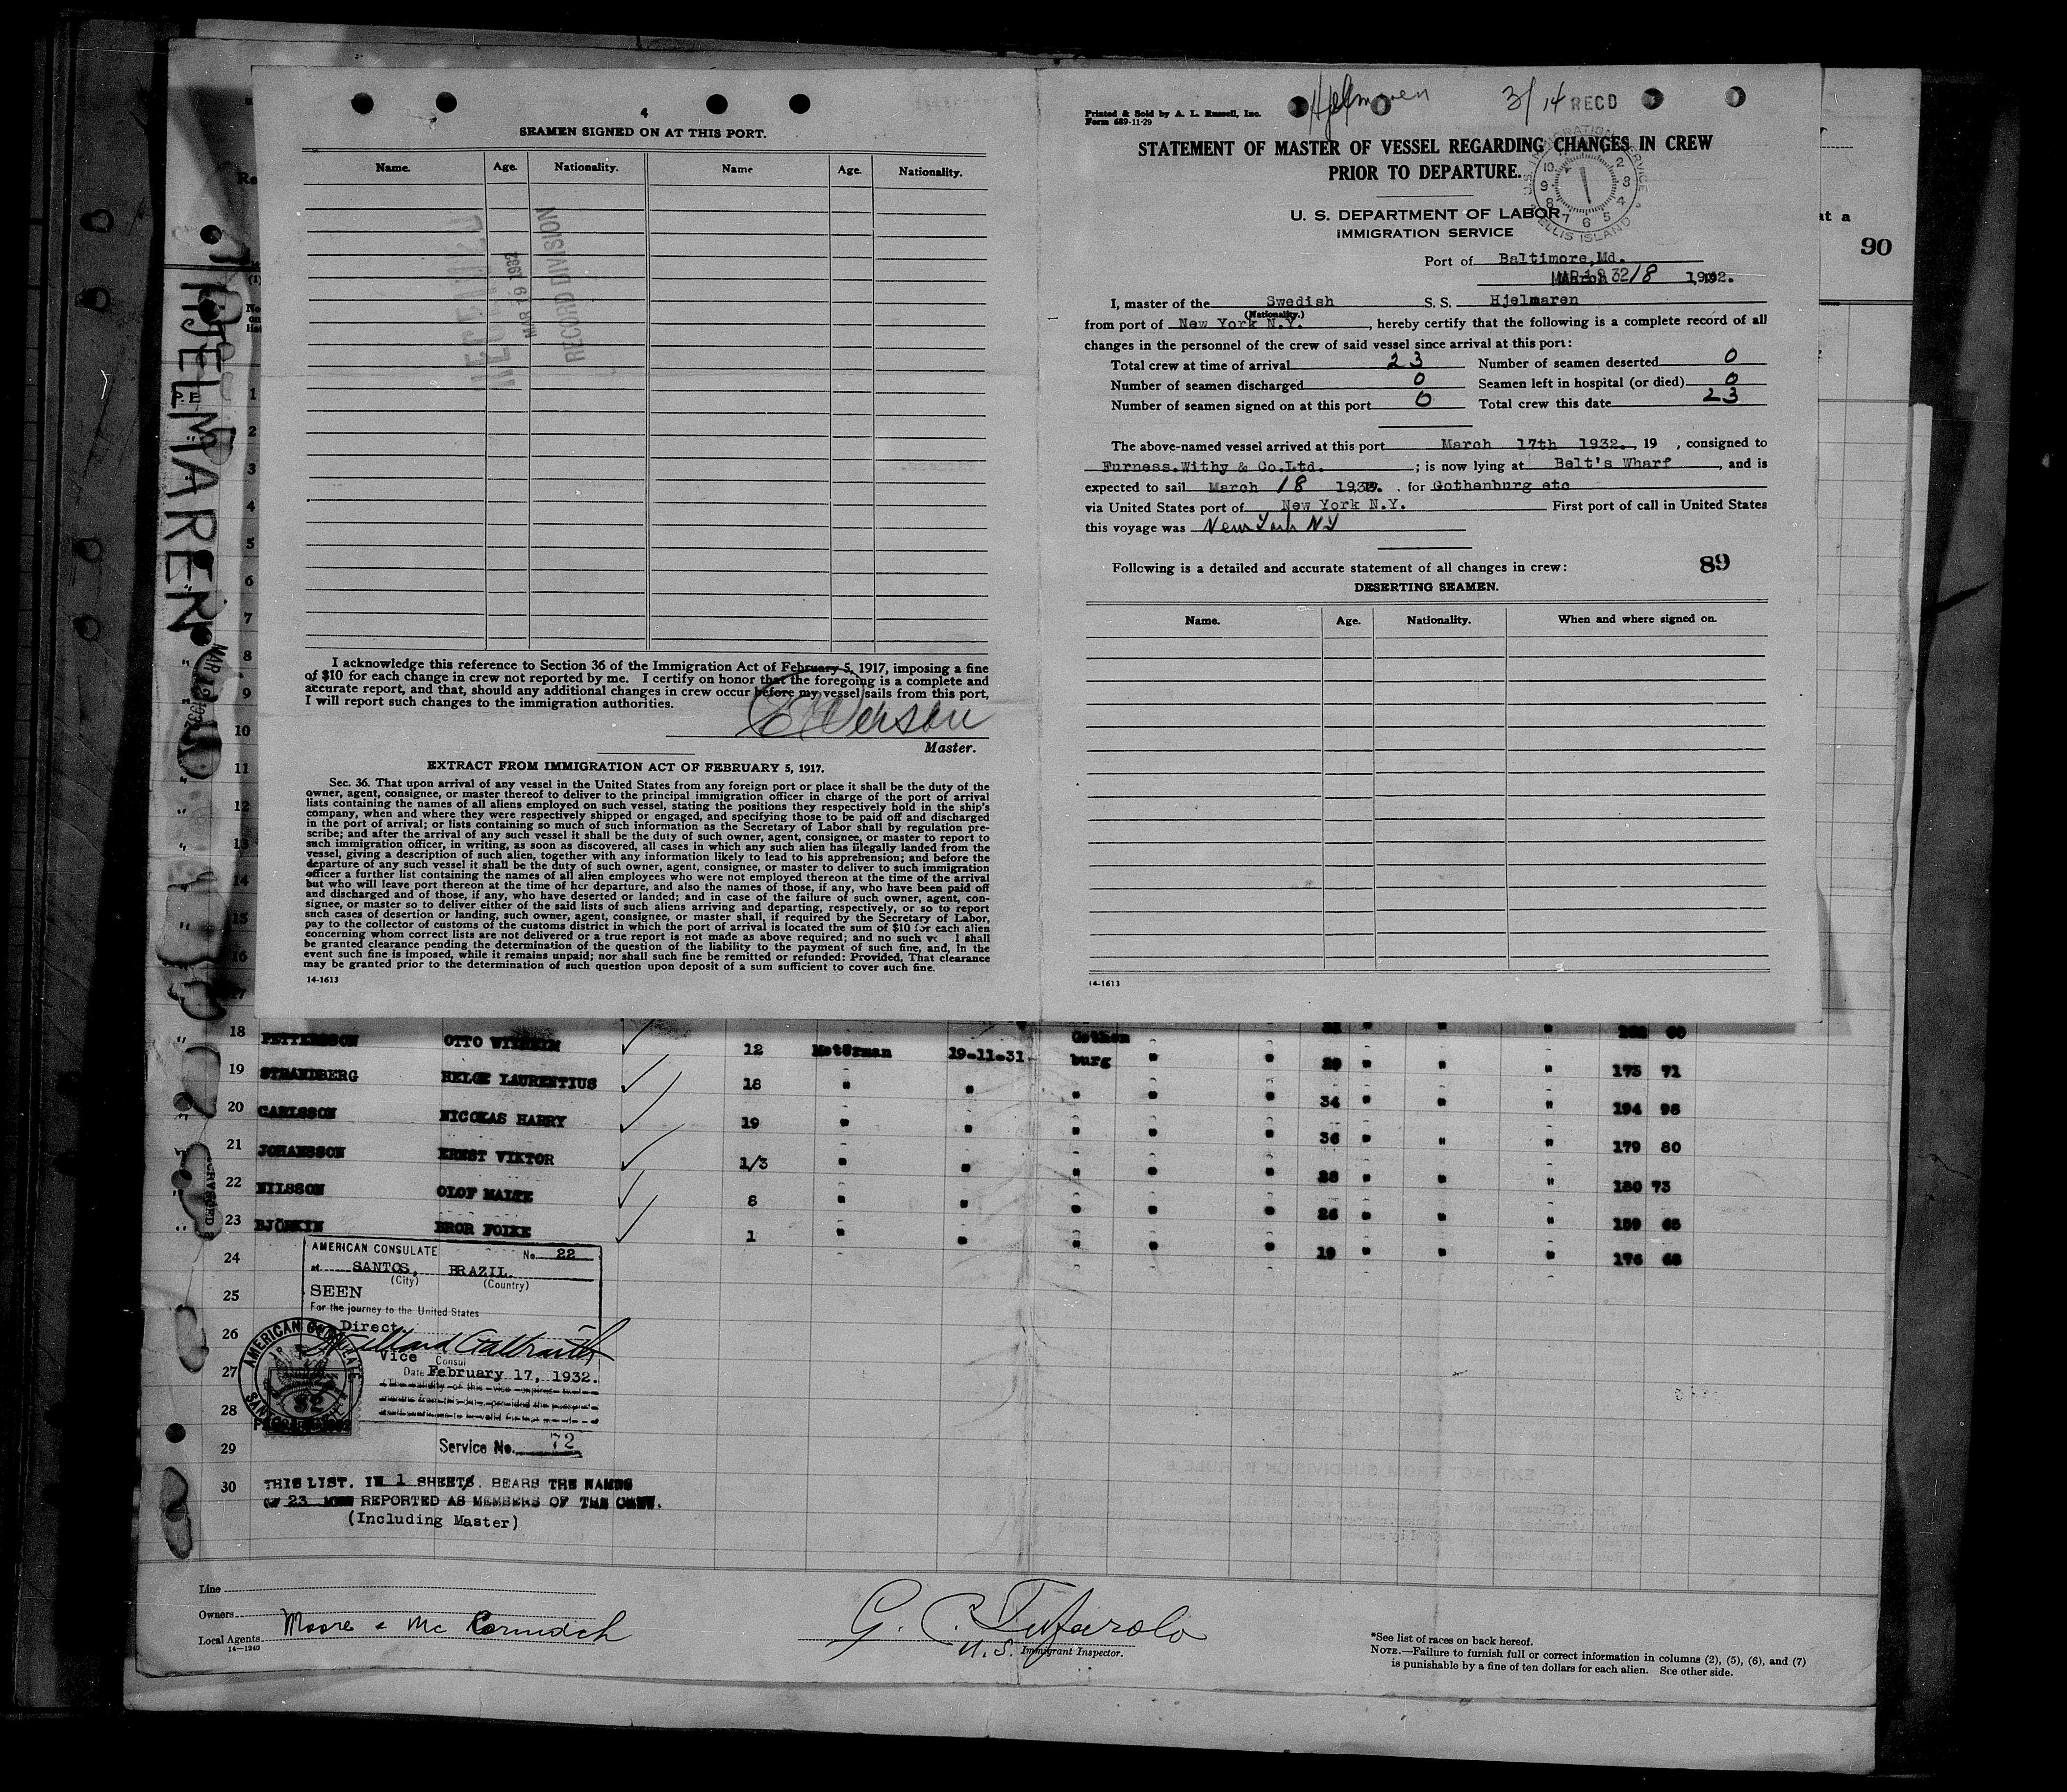 4
SEAMEN SIGNED ON AT THIS PORT.
Name. Age. Nationality. Name Age. Nationality.
MAR 19 1932
RECORD DIVISION
I acknowledge this reference to Section 36 of the Immigration Act of February 5, 1917, imposing a fine
of $10 for each change in crew not reported by me. I certify on honor that the foregoing is a complete and
accurate report, and that, should any additional changes in crew occur before my vessel sails from this port,
I will report such changes to the immigration authorities.
Master.
EXTRACT FROM IMMIGRATION ACT OF FEBRUARY 5, 1917.
Sec. 36. That upon arrival of any vessel in the United States from any foreign port or place it shall be the duty of the
owner, agent, consignee, or master thereof to deliver to the principal immigration officer in charge of the port of arrival
lists containing the names of all aliens employed on such vessel, stating the positions they respectively hold in the ship's
company, when and where they were respectively shipped or engaged, and specifying those to be paid off and discharged
in the port of arrival; or lists containing so much of such information as the Secretary of Labor shall by regulation pre-
scribe; and after the arrival of any such vessel it shall be the duty of such owner, agent, consignee, or master to report to
such immigration officer, in writing, as soon as discovered, all cases in which any such alien has illegally landed from the
vessel, giving a description of such alien, together with any information likely to lead to his apprehension; and before the
departure of any such vessel it shall be the duty of such owner, agent, consignee, or master to deliver to such immigration
officer a further list containing the names of all alien employees who were not employed thereon at the time of the arrival
but who will leave port thereon at the time of her departure, and also the names of those, if any, who have been paid off
and discharged and of those, if any, who have deserted or landed; and in case of the failure of such owner, agent, con-
signee, or master so to deliver either of the said lists of such aliens arriving and departing, respectively, or so to report
such cases of desertion or landing, such owner, agent, consignee, or master shall, if required by the Secretary of Labor,
pay to the collector of customs of the customs district in which the port of arrival is located the sum of $10 for each alien
concerning whom correct lists are not delivered or a true report is not made as above required; and no such l shall
be granted clearance pending the determination of the question of the liability to the payment of such fine, and, in the
event such fine is imposed, while it remains unpaid; nor shall such fine be remitted or refunded: Provided, That clearance
may be granted prior to the determination of such question upon deposit of a sum sufficient to cover such fine.
14-1613
Printed & Sold by A. L. Russell, Inc.
Form 689-11-29
3/14 RECD
STATEMENT OF MASTER OF VESSEL REGARDING CHANGES IN CREW
PRIOR TO DEPARTURE.
U. S. IMMIGRATION SERVICE ELLIS ISLAND
10 9 8 7 6 5 4 3 2
U. S. DEPARTMENT OF LABOR
IMMIGRATION SERVICE
Port of Baltimore, Md.
March 18 1932.
I, master of the Swedish S. S. Hjelmaren
(Nationality.)
from port of New York N.Y. , hereby certify that the following is a complete record of all
changes in the personnel of the crew of said vessel since arrival at this port:
Total crew at time of arrival 23 Number of seamen deserted 0
Number of seamen discharged 0 Seamen left in hospital (or died) 0
Number of seamen signed on at this port 0 Total crew this date 23
The above-named vessel arrived at this port March 17th 1932. 19 , consigned to
Furness.Withy & Co.Ltd. ; is now lying at Belt's Wharf , and is
expected to sail March 18 193 . , for Gothenburg etc
via United States port of New York N.Y. First port of call in United States
this voyage was New York NY
89
Following is a detailed and accurate statement of all changes in crew:
DESERTING SEAMEN.
Name. Age. Nationality. When and where signed on.
14-1613
at a
90
HJELMAREN
P.E
1
2
3
4
5
6
7
8
9
10
11
12
13
14
15
16
17
18 PETTERSSON OTTO WILHELM 12 Motorman 19-11-31 Gothen burg " " 29 " " " 173 71
19 STRANDBERG HELGE LAURENTIUS 18 " " " " " 34 " " " 194 98
20 CARLSSON NICOLAS HARRY 19 " " " " " 36 " " " 179 80
21 JOHANSSON ERNST VIKTOR 1/3 " " " " " 28 " " " 180 73
22 NILSSON OLOF MALTE 8 " " " " " 26 " " " 159 65
23 BJÖRKIN BROR FOIKE 1 " " " " " 19 " " " 176 68
24
25
26
27
28
29
30
AMERICAN CONSULATE No. 22
at SANTOS, BRAZIL.
(City) (Country)
SEEN
For the journey to the United States
Direct
Vice Consul
Date February 17, 1932.
AMERICAN CONSULATE
Service No. 72
THIS LIST. IN 1 SHEETS. BEARS THE NAMES
OF 23 MEN REPORTED AS MEMBERS OF THE CREW.
(Including Master)
Line
Owners
Local Agents Moore & McCormick
14-1240
G. C. Tufarolo
U.S. Immigrant Inspector.
*See list of races on back hereof.
NOTE.—Failure to furnish full or correct information in columns (2), (5), (6), and (7)
is punishable by a fine of ten dollars for each alien. See other side.